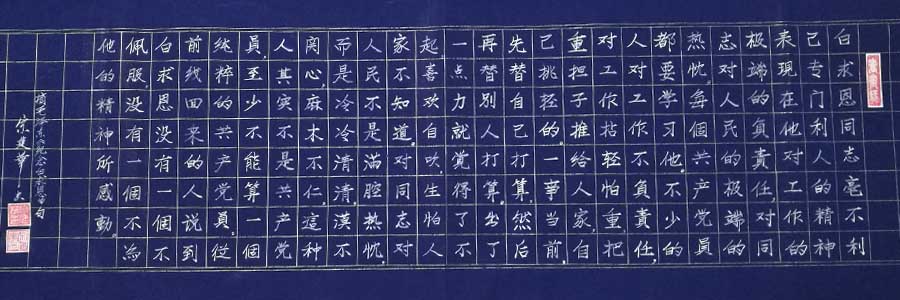 白求恩同志毫不利
己专门利人的精神
表现在他对工作的
极端的負責任,对同
志对人民的极端的
热忱,每個共产党員
都要学习他.不少的
人对工作不負責任,
对工作拈轻怕重,把
重担子推給人家,自
己挑轻的.一事当前,
先替自己打算,然后
再替別人打算.出了
一点力就觉得了不
起,喜欢自吹,生怕人
家不知道.对同志对
人民不是满腔热忱,
而是冷冷清清,漠不
関心,麻木不仁.這种
人其实不是共产党
員,至少不能算一個
纯粹的共产党員.從
前线回来的人説到
白求恩,没有一個不
佩服,没有一個不為
他的精神所感動.